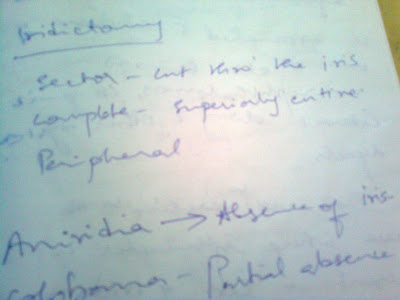 Iridictomy
Sector - cut thro' the iris
Complete - Superiorly entire.
Peripheral
Aniridia → Absence of iris
Coloboma - Partial absence